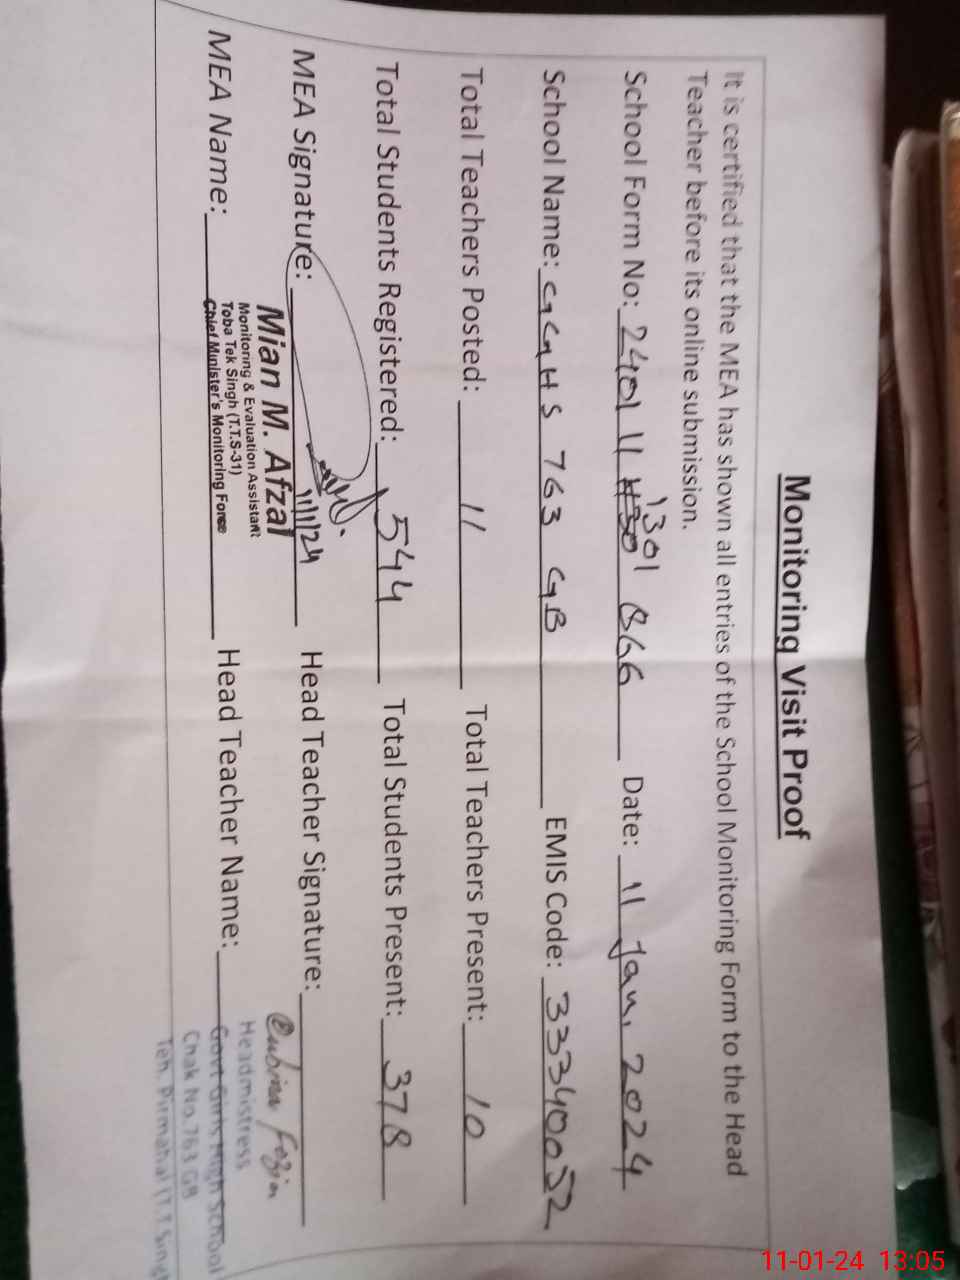 Monitoring Visit Proof
It is certified that the MEA has shown all entries of the School Monitoring Form to the Head
Teacher before its online submission.
School Form No: 2401 11 1301 866 Date: 11 Jan, 2024
School Name: GGHS 763 GB EMIS Code: 33340052
Total Teachers Posted: 11 Total Teachers Present: 10
Total Students Registered: 544 Total Students Present: 378
MEA Signature: 11/1/24 Head Teacher Signature: Rubina
MEA Name: Head Teacher Name:
Mian M. Afzal
Monitoring & Evaluation Assistant
Toba Tek Singh (T.T.S-31)
Chief Minister's Monitoring Force
Headmistress
Govt Girls High School
Chak No.763 GB
Teh. Pirmahal (T.T.Singh
11-01-24 13:05